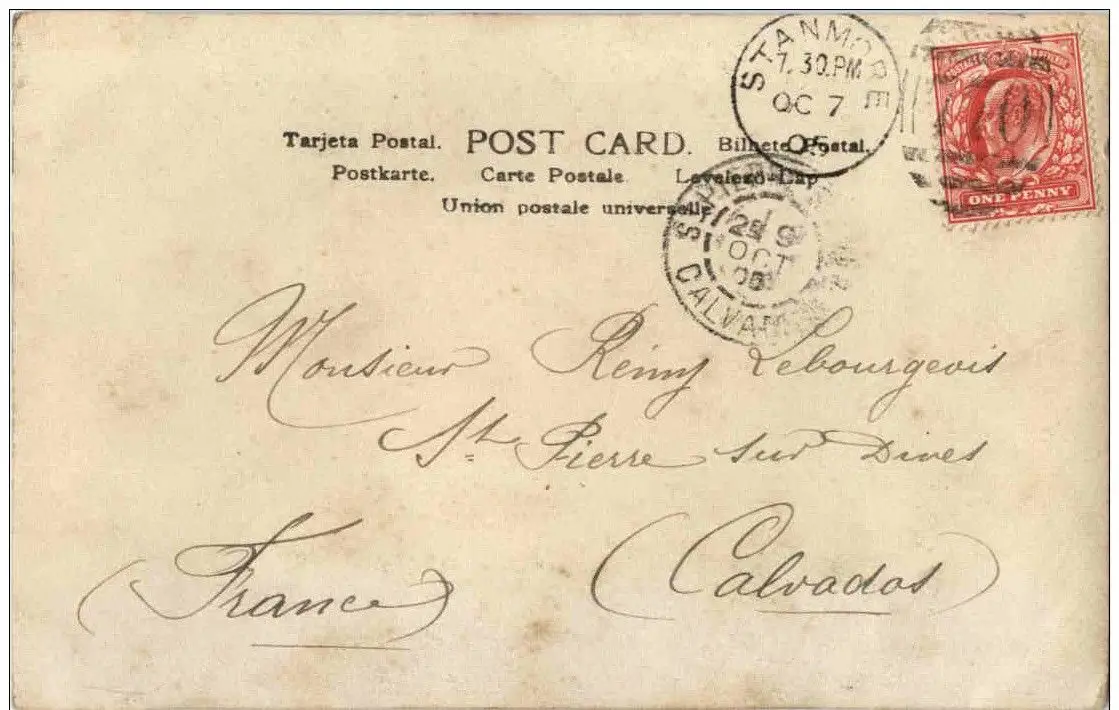 STANMORE
7.30.PM
OC 7
05
ONE PENNY
Tarjeta Postal. POST CARD. Bilhete Postal.
Postkarte. Carte Postale Levelezö-Lap
Union postale universelle
9
OCT
05
CALVADOS
Monsieur Rémy Lebourgeois
St. Pierre sur Dives
(France) (Calvados)